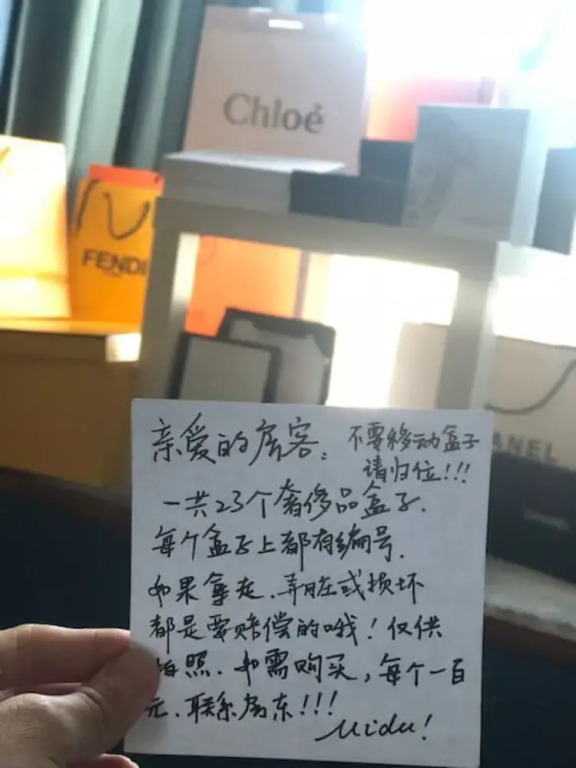 Chloé
FENDI
ANEL
亲爱的房客：
不要移动盒子
请归位!!!
一共23个奢侈品盒子.
每个盒子上都有编号.
如果拿走.弄脏或损坏
都是要赔偿的哦！仅供
拍照.如需购买，每个一百
元.联系房东!!!
Midu!